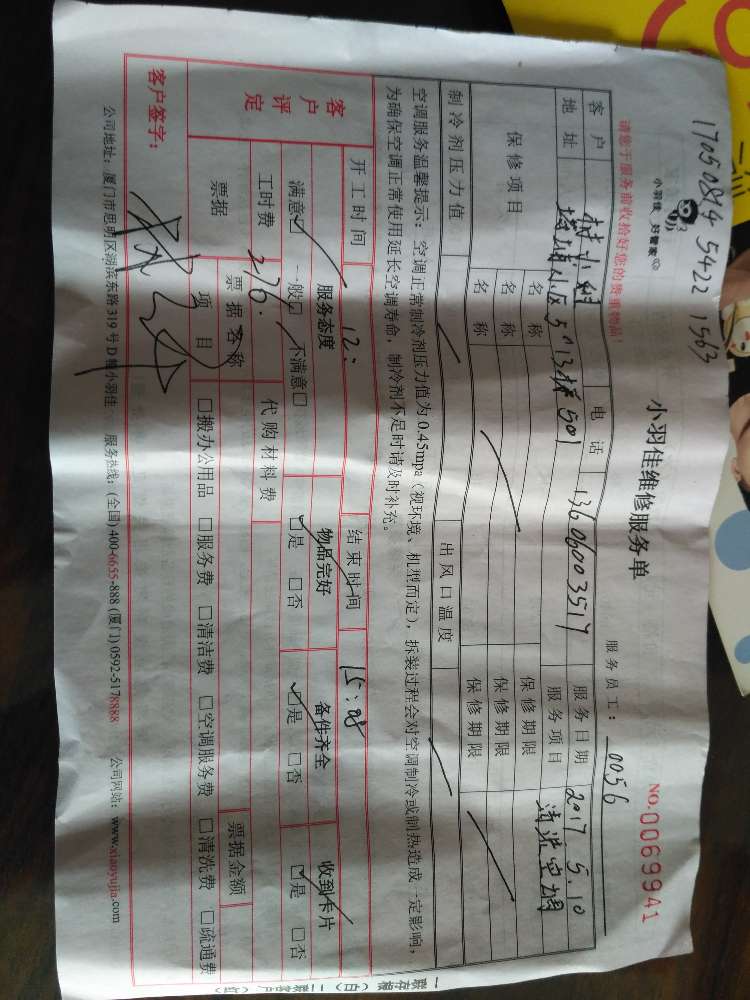 17050814 5422 1563
小羽佳 好管家
小羽佳维修服务单
NO.0069941
请您于服务前收拾好您的贵重物品!
服务员工: 0056
客户 林小姐 电话 13606003517 服务日期 2017 5.10
地址 小区501 服务项目 清洗空调
保修项目 名称 保修期限
名称 保修期限
名称 保修期限
制冷剂压力值 出风口温度
空调服务温馨提示: 空调正常制冷剂压力值为0.45mpa(视环境、机型而定),拆装过程会对空调制冷或制热造成一定影响,
为确保空调正常使用延长空调寿命,制冷剂不足时请及时补充。
开工时间 12: 结束时间 15:08
客户评定 服务态度 物品完好 备件齐全 收到卡片
满意☑ 一般□ 不满意□ ☑是 □否 ☑是 □否 ☑是 □否
工时费 276. 代购材料费
票据 票据名称 票据金额
项目 □搬办公用品 □服务费 □清洁费 □空调服务费 □清洗费 □疏通费
客户签字:
公司地址: 厦门市思明区湖滨东路319号D幢小羽佳 服务热线: (全国)400-6655-888 (厦门)0592-5178888 公司网站: www.xiaoyujia.com